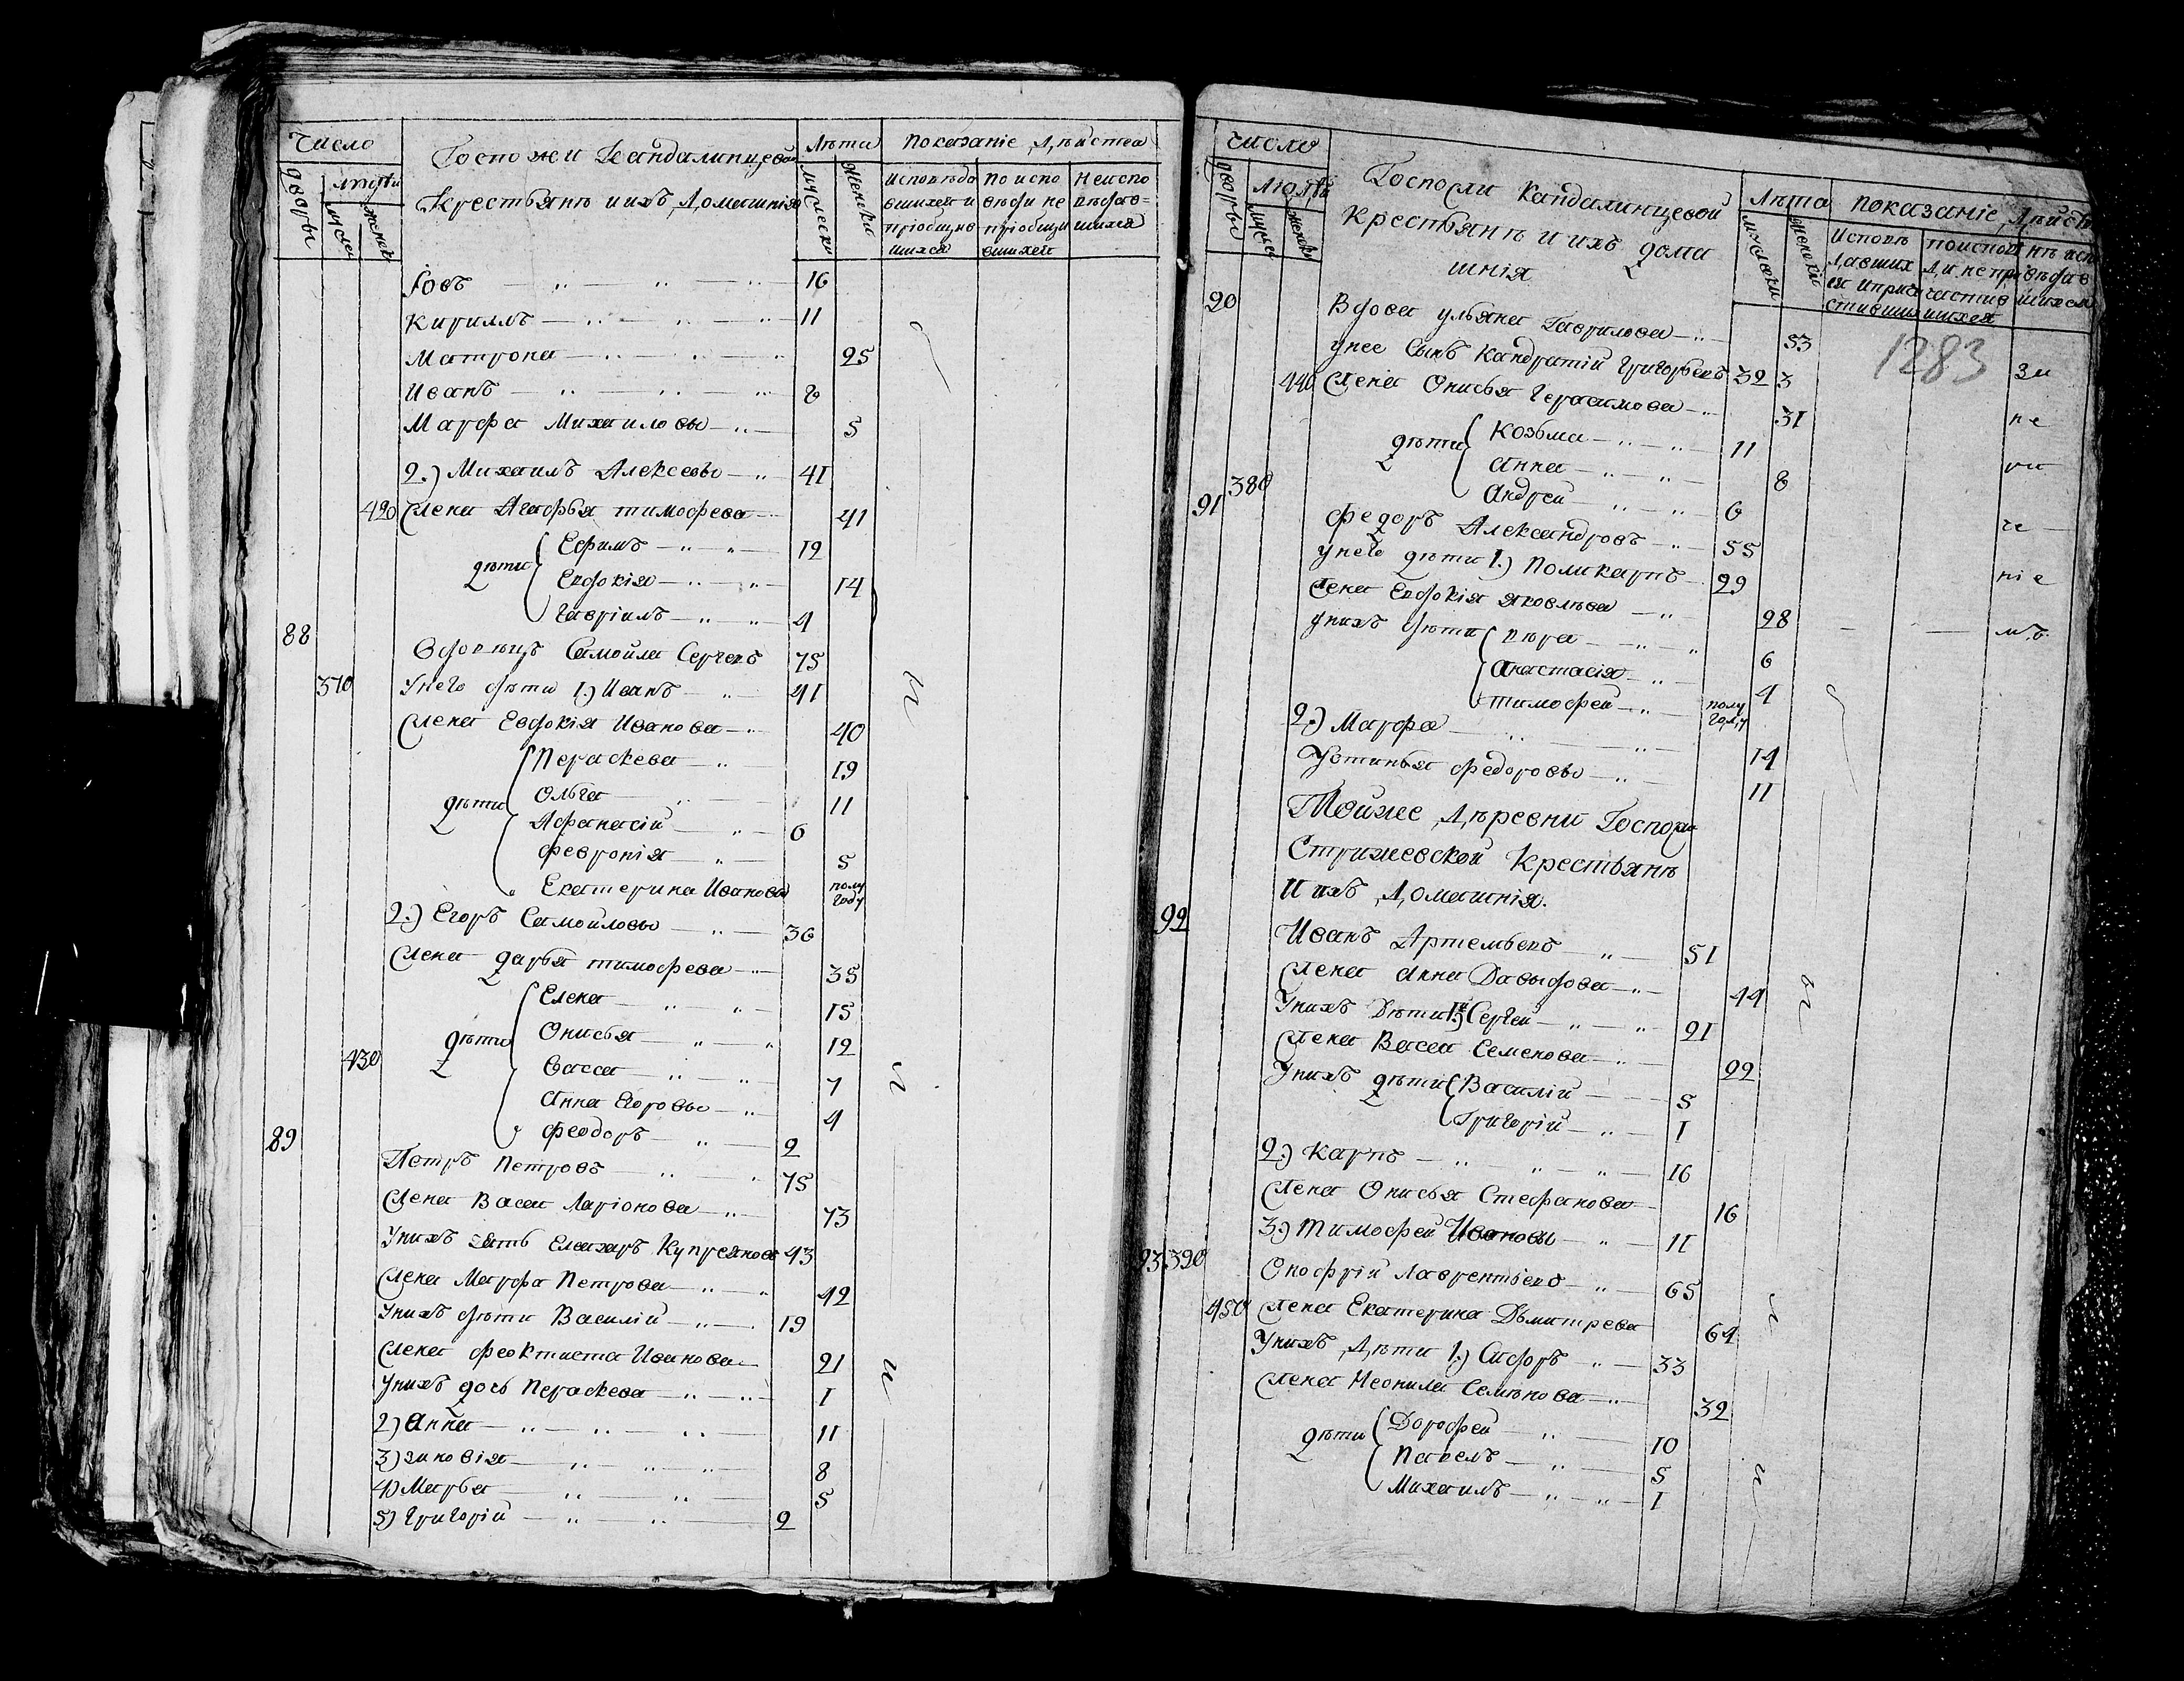 Число
Госпожи Кандалинцевой
Лѣта
Показаніе Дѣйства
дворы
людей
мужска
женск
Крестьянѣ и ихъ Домашнія
мужески
женски
Исповѣдо
вшихся и
пріобщив
шихся
По испо
вѣди не
пріобщи
вшихся
Неиспо
вѣдав=
шихся
Іовъ 16
Кириллъ 11
Матрона 25
Иванъ 8
Марфа Михаиловы 5
2.) Михаилъ Алексеевъ 41
420 Жена Агафья тимофева 41
дѣти Ефимъ 12
Евдокія 14
Гавріилъ 4
88
Вдовецъ Самойла Сергеевъ 75
370 У него дѣти 1.) Иванъ 41
Жена Евдокія Иванова 40
Параскева 19
дѣти Ольга 11
Афанасій 6
Февронія 5
Екатерина Ивановы полу году
2.) Егоръ Самойловы 36
Жена дарья тимофева 35
Елена 15
дѣти Онисья 12
430 Васса 7
Анна Егоровы 4
Феодоръ 2
89
Петръ Петровъ 75
Жена Васса Ларіонова 73
У нихъ зять Елизаръ Купреяновъ 43
Жена Марфа Петрова 42
У нихъ дѣти Василій 19
Жена Феоктиста Иванова 21
У нихъ дочь Параскева 1
2) Анна 11
3) зиновія 8
4) Марья 5
5) Григорій 2
Число
дворы
Людѣй
мужск
женск
Госпожи Кандалинцевой
Крестьянѣ и ихъ дома
шнія
Лѣта
мужески
женски
показаніе Дѣйств
Исповѣ
давших
ся и прича
стивши
по испов
ди не при
частив
шихся
не испо
вѣдав
шихся
1283
90
Вдова ульяна Гаврилова 53
у нее Сынъ Кандратій Григорьевъ 32 з за
440 Жена Онисья Герасимова 31 не
дѣти Козьма 11
Анна 8
380 Андрей 6
91
Федоръ Александровъ 55
у него дѣти 1.) Поликарпъ 29 ніе
Жена Евдокія яковлева 28 мъ
у нихъ дѣти вѣра 6
Анастасія 4
тимофей полу году
2.) Марфа 14
Устинья Федоровы 11
Тойже Деревни Госпожи
Стрижевской Крестьянѣ
И ихъ Домашнія.
92
Иванъ Артемьевъ 51
Жена Анна Давыдова 44
У нихъ Дѣти 1.) Сергей 21
Жена Васса Семенова 22
У нихъ дѣти Василій 5
Григорій 1
2.) Карпъ 16
Жена Онисья Стефанова 16
3.) Тимофей Ивановы 11
93 390
Онофрій Лаврентьевъ 65
450 Жена Екатерина Дьмитрева 64
У нихъ Дѣти 1.) Сидоръ 33
Жена Неонила Семѣнова 32
дѣти Дорофей 10
Павелъ 5
Михаилъ 1